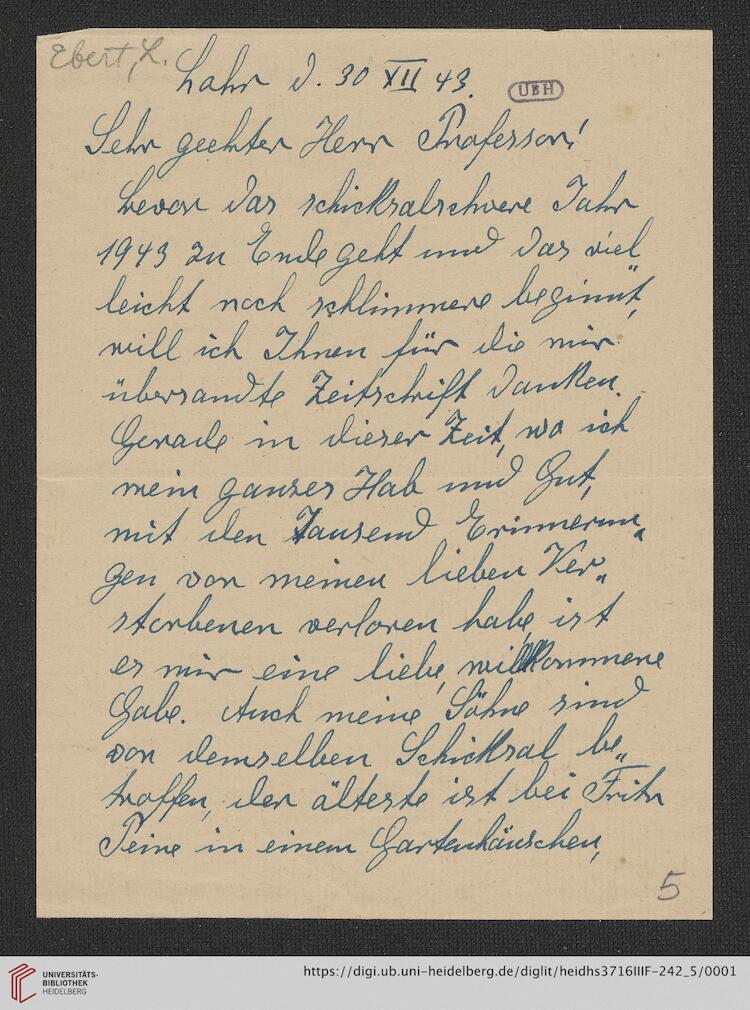 Ebert, L.
Lahr d. 30 XII 43.
UBH
Sehr geehrter Herr Professor!
bevor das schicksalschwere Jahr
1943 zu Ende geht und das viel
leicht noch schlimmere beginnt,
will ich Ihnen für die mir
übersandte Zeitschrift danken.
Gerade in dieser Zeit, wo ich
mein ganzes Hab und Gut,
mit den Tausend Erinnerun„
gen von meinen lieben Ver„
storbenen verloren habe, ist
es mir eine liebe, willkommene
Gabe. Auch meine Söhne sind
von demselben Schicksal be„
troffen, der älteste ist bei Fritz
Peine in einem Gartenhäuschen,
5
UNIVERSITÄTS-
BIBLIOTHEK
HEIDELBERG
https://digi.ub.uni-heidelberg.de/diglit/heidhs3716IIIF-242_5/0001